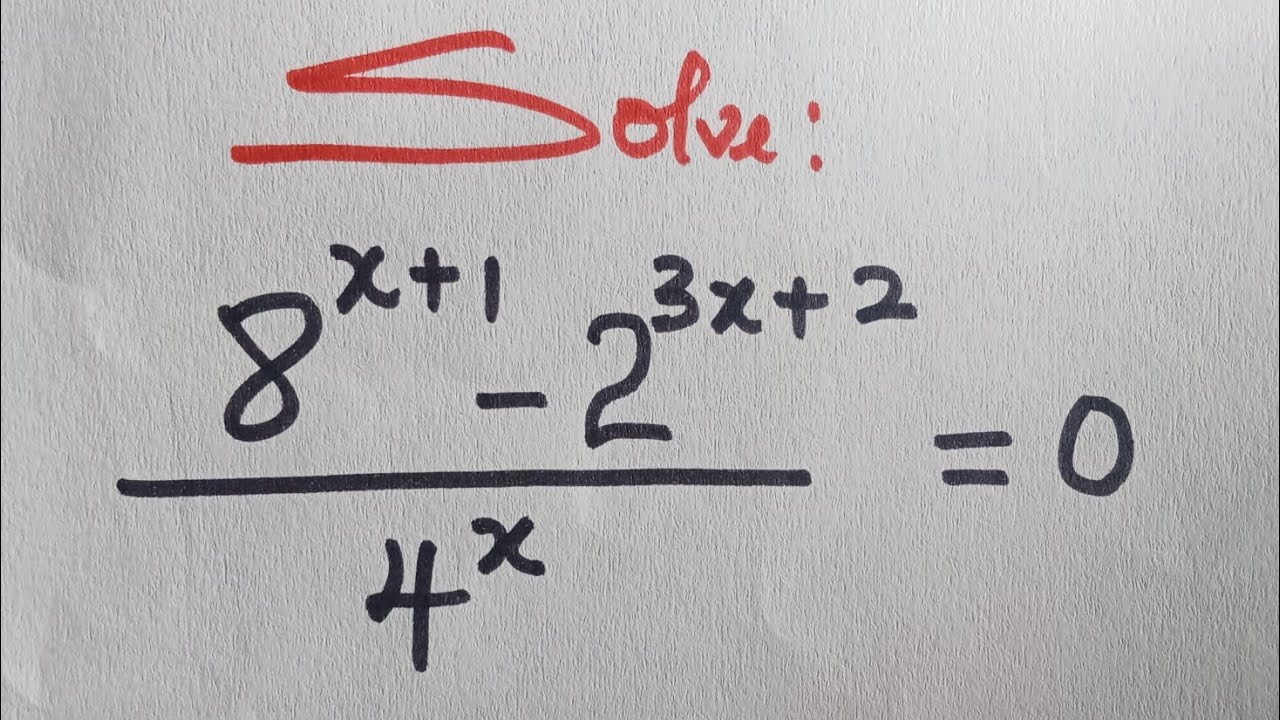 Solve:
8^{x+1} - 2^{3x+2}
――― = 0
4^x